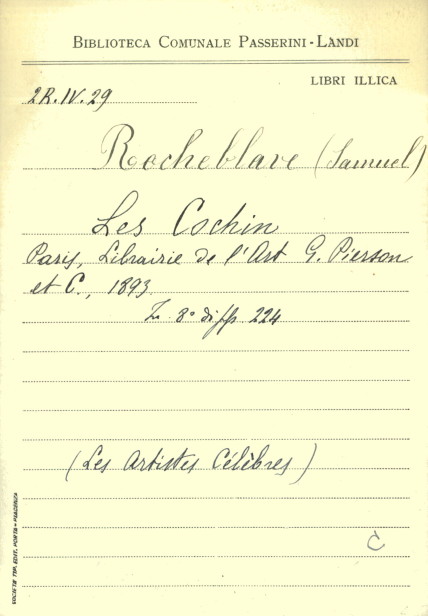 BIBLIOTECA COMUNALE PASSERINI-LANDI
LIBRI ILLICA
2R.IV.29
Rocheblave (Samuel)
Les Cochin
Paris, Librairie de l'Art G. Pierson
et C., 1893
8° di pp. 224
(Les Artistes Célèbres)
C
SOCIETÀ TIP. EDIT. PORTA - PIACENZA